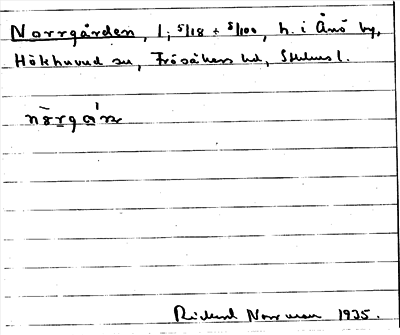 Norrgården, 1, 5/18 + 5/100, h. i Ånö by,
Hökhuvud sn, Frösåkers hd, Sthlms l.
Rickard Norrman 1935.